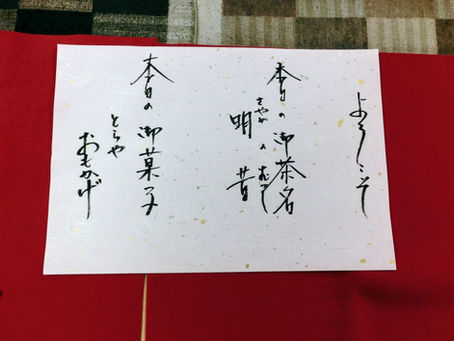 ようこそ
本日の御茶名
さやか むかし
明の昔
本日の御菓子
とらや
おもかげ